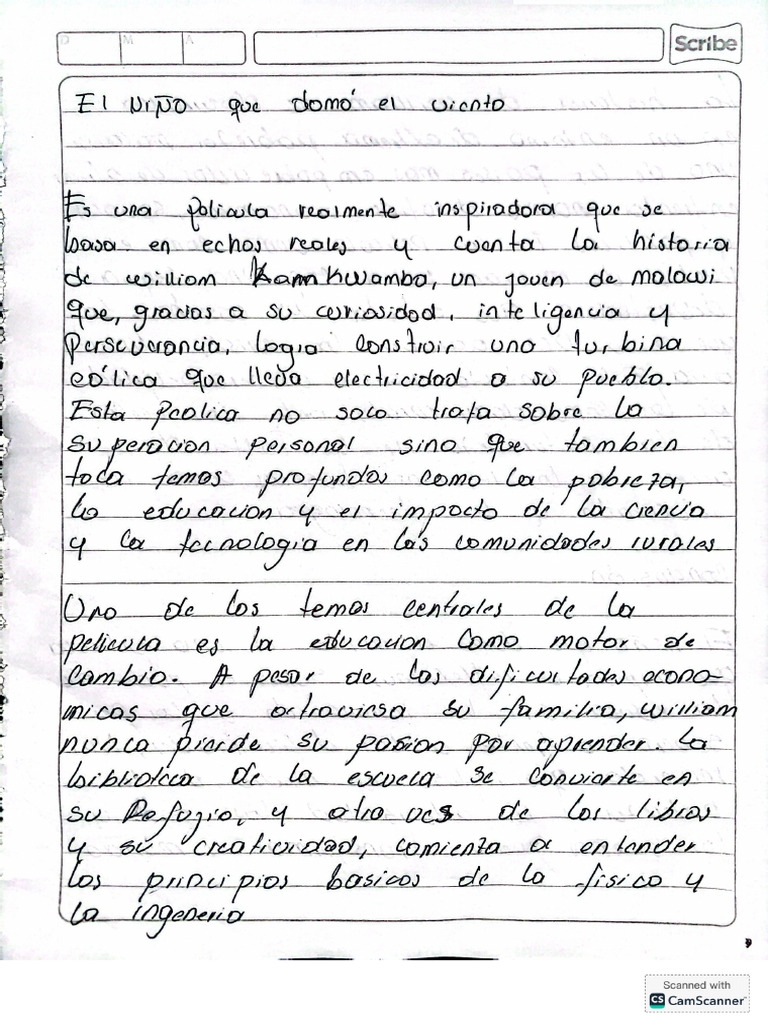 D M A
Scribe
El NIÑO que domó el viento
Es una policula realmente inspiradora que se
basa en echos reales y cuenta la historia
de william Kamkwamba, un joven de malawi
que, gracias a su curiosidad, inteligencia y
Perseverancia, logra construir una turbina
eólica que lleva electricidad a su pueblo.
Esta peolica no solo trata sobre la
superacion personal sino que tambien
toca temas profundos como la pobreza,
la educacion y el impacto de la ciencia
y la tecnologia en las comunidades rurales
Uno de los temas centrales de la
pelicula es la educacion como motor de
cambio. A pesar de las dificultades econo-
micas que atraviesa su familia, william
nunca pierde su pasion por aprender. La
biblioteca de la escuela se convierte en
su Refugio, y atra ves de los libros
y su creatividad, comienza a entender
los principios basicos de la fisica y
la ingeneria
Scanned with
CS CamScanner